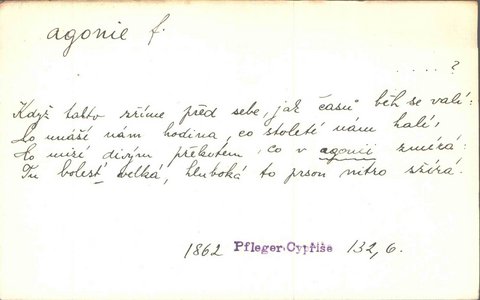 agonie f.
. . . . ?
Když takto zříme před sebe, jak časů běh se valí:
Co unáší nám hodina, co století nám halí,
Co mizí divým překotem, co v agonii zmírá:
Tu bolest velká, hluboká to prsou nitro sžírá.
1862 Pfleger-Cypřiše 132, 6.